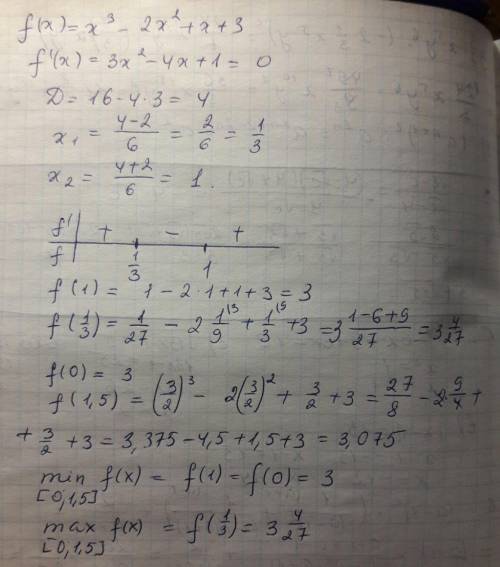 f(x) = x³ - 2x² + x + 3
f'(x) = 3x² - 4x + 1 = 0
D = 16 - 4·3 = 4
x₁ = (4-2)/6 = 2/6 = 1/3
x₂ = (4+2)/6 = 1.
f' + - +
f 1/3 1
f(1) = 1 - 2·1 + 1 + 3 = 3
f(1/3) = 1/27 - 2 1/9 + 1/3 + 3 = 3 (1-6+9)/27 = 3 4/27
f(0) = 3
f(1,5) = (3/2)³ - 2(3/2)² + 3/2 + 3 = 27/8 - 2·9/4 +
+ 3/2 + 3 = 3,375 - 4,5 + 1,5 + 3 = 3,075
min f(x) = f(1) = f(0) = 3
[0,1,5]
max f(x) = f(1/3) = 3 4/27
[0,1,5]